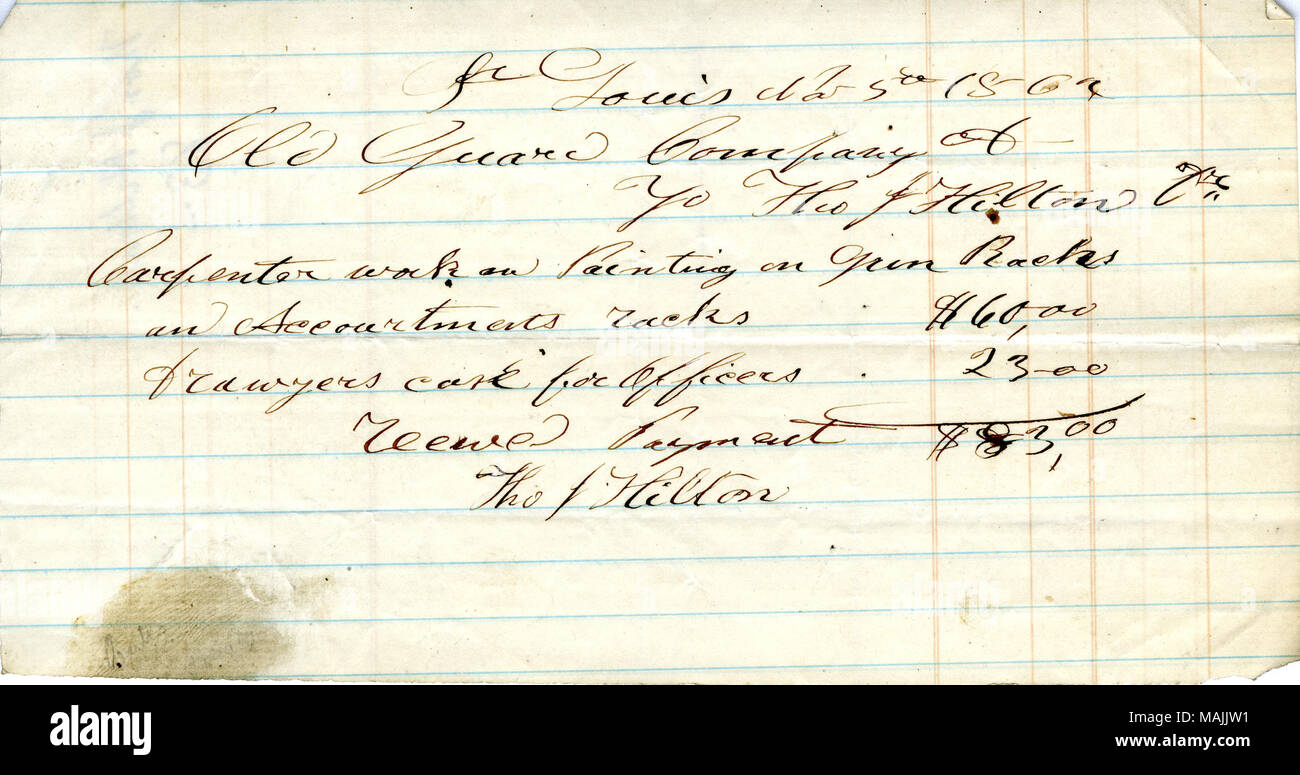 St Louis Nov 5th 1864
Old Guard Company A
To Tho J Hilton Dr
Carpenter work an Painting on Gun Racks
an Accourtments racks $60,00
Drawyers case for Officers . 23-00
Recived Payment $83,00
Tho J Hilton
alamy
Image ID: MAJJW1
www.alamy.com